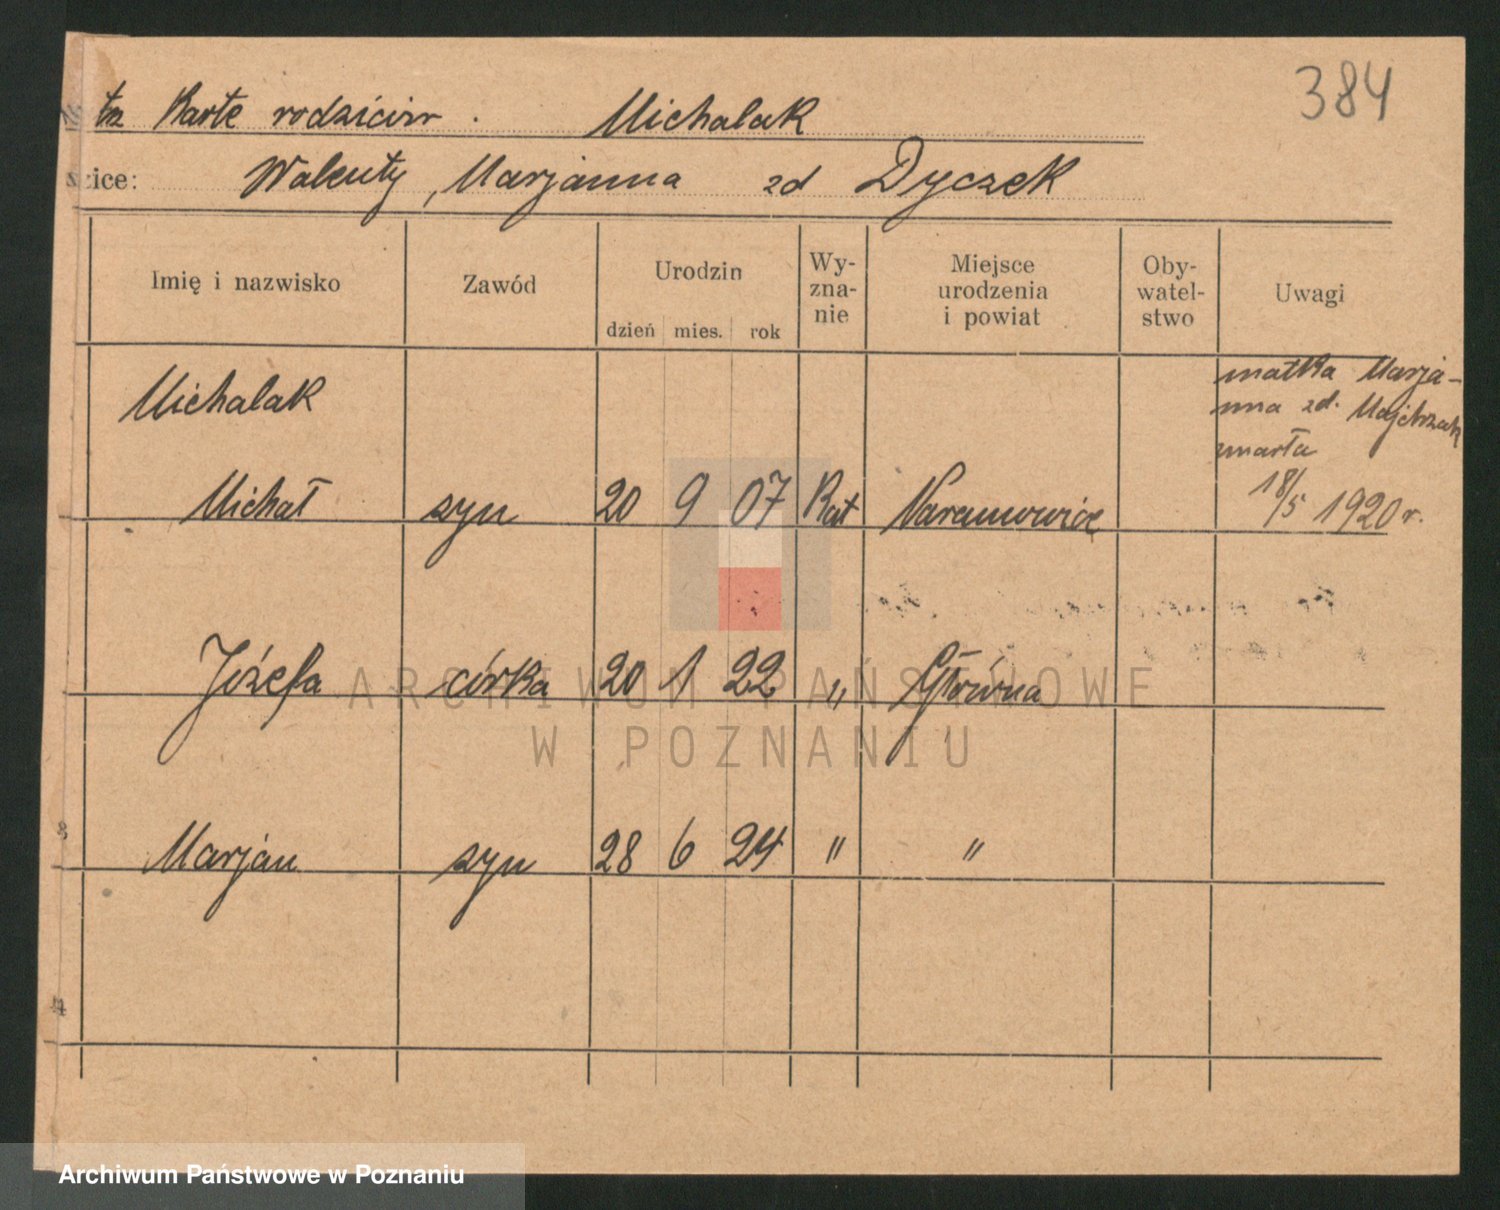 384
tz Karte rodziców. Michalak
zice: Walenty, Marjanna zd Dyczek
Imię i nazwisko Zawód Urodzin dzień mies. rok Wy-zna-nie Miejsce urodzenia i powiat Oby-watel-stwo Uwagi
Michalak matka Marja-
nna zd. Majchrzak
zmarła
Michał syn 20 9 07 Kat Naramowice 18/5 1920 r.
Józefa córka 20 1 22 " Główna
ARCHIWUM PAŃSTWOWE
W POZNANIU
Marjan syn 28 6 24 " "
Archiwum Państwowe w Poznaniu